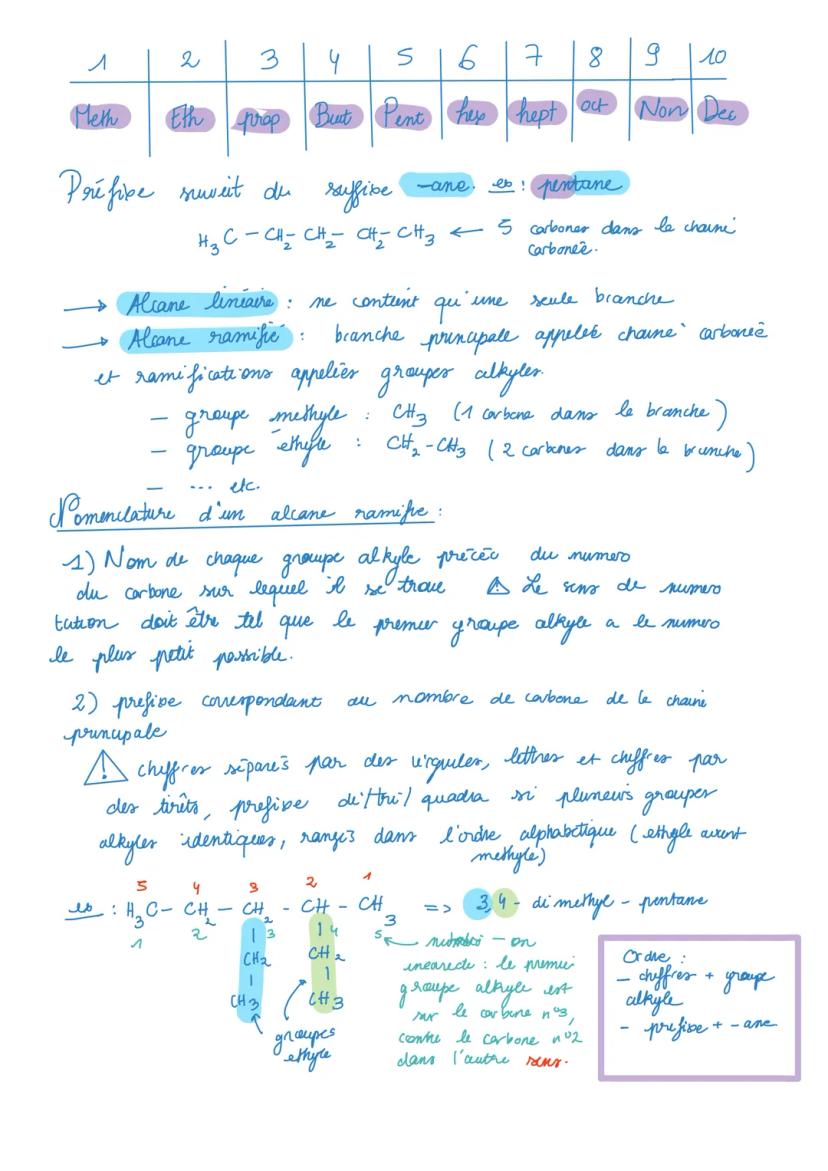 1 2 3 4 5 6 7 8 9 10
Meth Eth prop But Pent hex hept oct Non Dec
Préfixe suivit du suffixe -ane. ex : pentane
H3C - CH2 - CH2 - CH2 - CH3 ← 5 carbones dans la chaine
carboneé.
→ Alcane linéaire : ne contient qu'une seule branche
→ Alcane ramifié : branche principale appelée chaine carboneé
et ramifications appelées groupes alkyles.
- groupe methyle : CH3 (1 carbone dans la branche)
- groupe éthyle : CH2-CH3 (2 carbones dans la branche)
- ... etc.
Nomenclature d'un alcane ramifie :
1) Nom de chaque groupe alkyle précéé du numero
du carbone sur lequel il se trouve ⚠ Le sens de numero
tation doit être tel que le premier groupe alkyle a le numero
le plus petit possible.
2) prefixe correspondant au nombre de carbone de la chaine
principale
⚠ chiffres séparés par des virgules, lettres et chiffres par
des tirêts, prefixe di/tri/quadra si plusieurs groupes
alkyles identiques, rangés dans l'ordre alphabétique (ethyle avant
methyle)
5 4 3 2 1
ex : H3C - CH2 - CH2 - CH - CH3 => 3,4 - dimethyl - pentane
1 2 3 4 5 ← - on
CH2 CH2 incorrecte : le premier
CH3 CH3 groupe alkyle est
sur le carbone n°3,
groupes contre le carbone n°2
ethyle dans l'autre sens.
Ordre :
- chiffres + groupe
alkyle
- prefixe + - ane